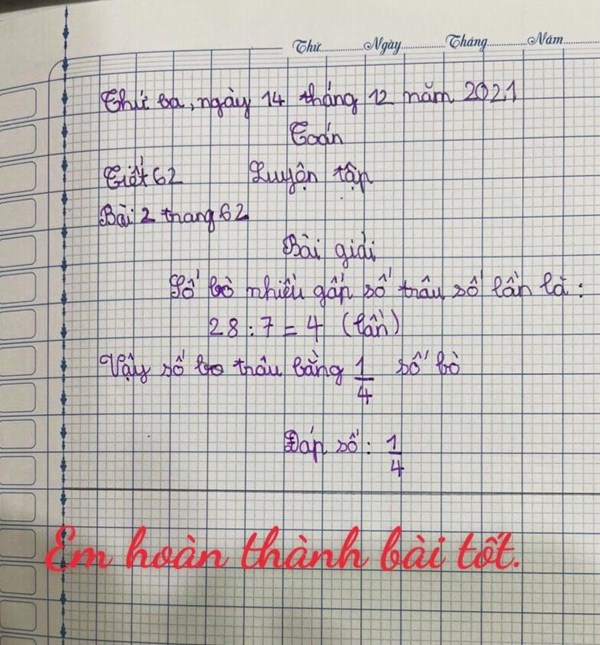 Thứ Ngày Tháng Năm
Thứ ba, ngày 14 tháng 12 năm 2021
Toán
Tiết 62 Luyện tập
Bài 2 trang 62
Bài giải
Số bò nhiều gấp số trâu số lần là:
28 : 7 = 4 (lần)
Vậy số bo trâu bằng 1/4 số bò
Đáp số: 1/4
Em hoàn thành bài tốt.